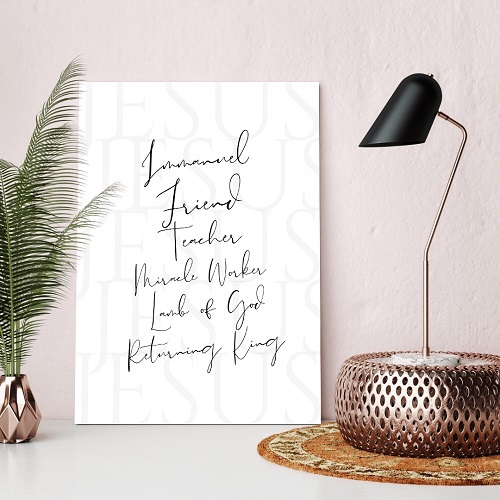 JESUS
Immanuel
JESUS
Friend
Teacher
JESUS
Miracle Worker
JESUS
Lamb of God
Returning King
JESUS